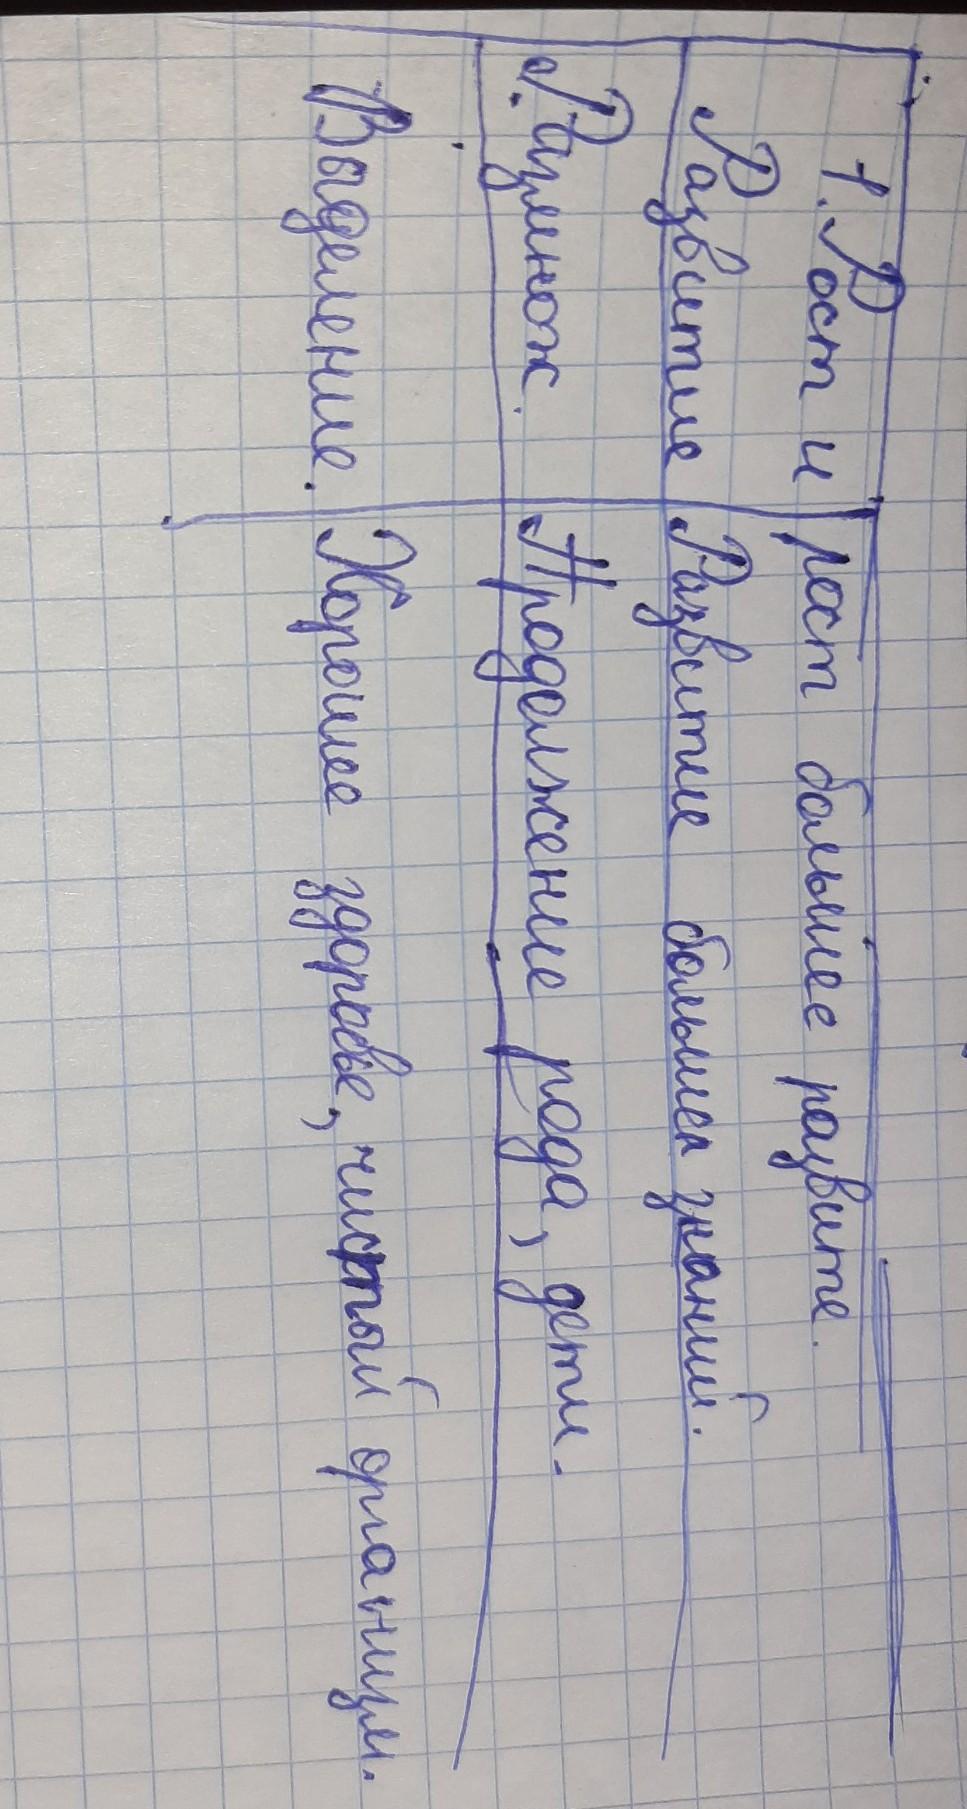 1. Рост и рост больше развите.
Развитие Развитие больше знаний.
Размнож. Продолжение рода, дети.
Выделение. Хорошее здоровье, чистый организм.